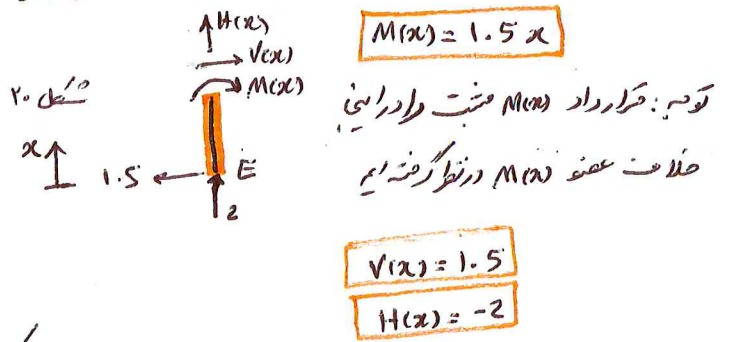 H(x)
V(x)
M(x)
شکل ۲۰
x
1.5
E
2
M(x) = 1.5 x
توجه: قرارداد M(x) مثبت را در اینجا
خلاف عضو M(x) در نظر گرفته ایم
V(x) = 1.5
H(x) = -2